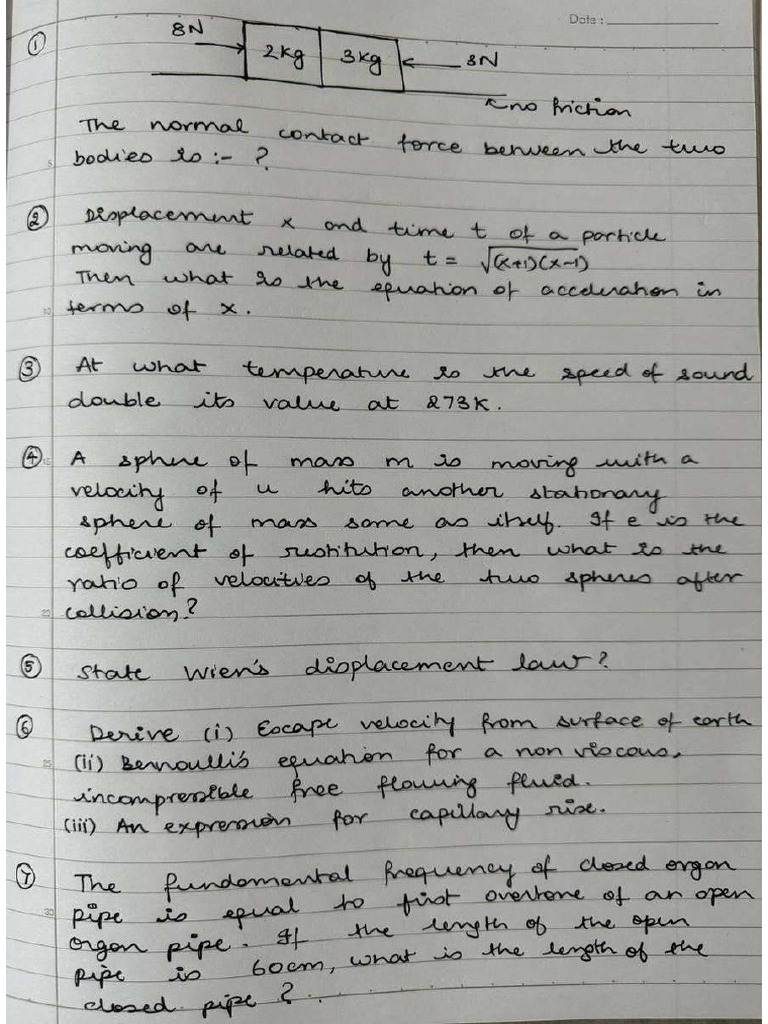 Date :
① 8N 2kg 3kg 8N
no friction
The normal contact force between the two
bodies is :- ?
② Displacement x and time t of a particle
moving are related by t = √(x+1)(x-1)
Then what is the equation of acceleration in
terms of x.
③ At what temperature is the speed of sound
double its value at 273K.
④ A sphere of mass m is moving with a
velocity of u hits another stationary
sphere of mass same as itself. If e is the
coefficient of restitution, then what is the
ratio of velocities of the two spheres after
collision?
⑤ State Wien's displacement law?
⑥ Derive (i) Escape velocity from surface of earth
(ii) Bernoulli's equation for a non viscous,
incompressible free flowing fluid.
(iii) An expression for capillary rise.
⑦ The fundamental frequency of closed organ
pipe is equal to first overtone of an open
organ pipe. If the length of the open
pipe is 60cm, what is the length of the
closed pipe ?